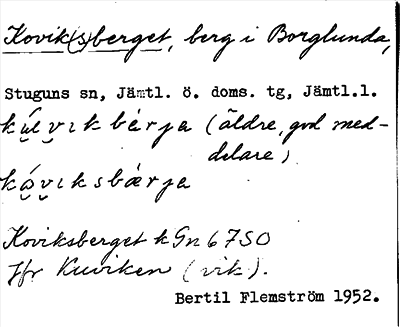 Kovik(s)berget, berg i Borglunda,
Stuguns sn, Jämtl. ö. doms. tg, Jämtl.l.
kúlvıkbèrja (äldre, god med-
delare)
kóvıksbærja
Koviksberget k Gn 67SO
Jfr Kuviken (vik).
Bertil Flemström 1952.